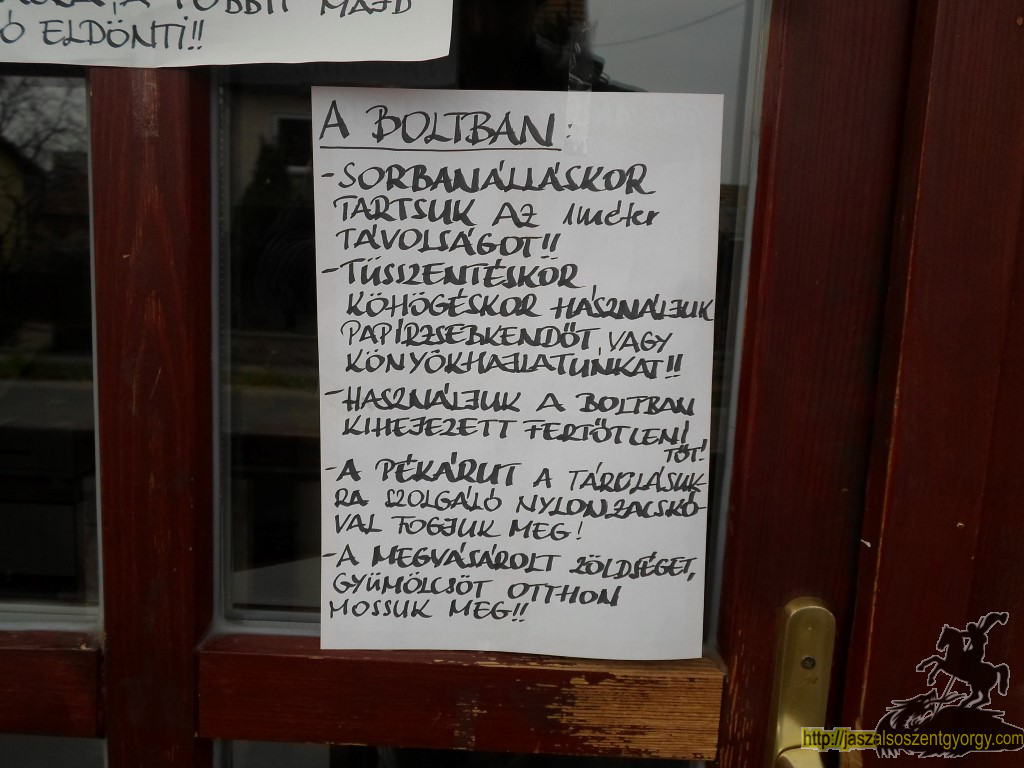 TÖBBIT MAJD
Ó ELDÖNTI!!
A BOLTBAN:
-SORBANÁLLÁSKOR
TARTSUK AZ 1 méter
TÁVOLSÁGOT!!
-TÜSSZENTÉSKOR
KÖHÖGÉSKOR HASZNÁLJUK
PAPÍRZSEBKENDŐT, VAGY
KÖNYÖKHAJLATUNKAT!!
-HASZNÁLJUK A BOLTBAN
KIHEJEZETT FERTŐTLENÍ
TŐT!
-A PÉKÁRUT A TÁROLÁSUK-
RA SZOLGÁLÓ NYLONZACSKÓ-
VAL FOGJUK MEG!
-A MEGVÁSÁROLT ZÖLDSÉGET,
GYÜMÖLCSÖT OTTHON
MOSSUK MEG!!
http://jaszalsoszentgyorgy.com